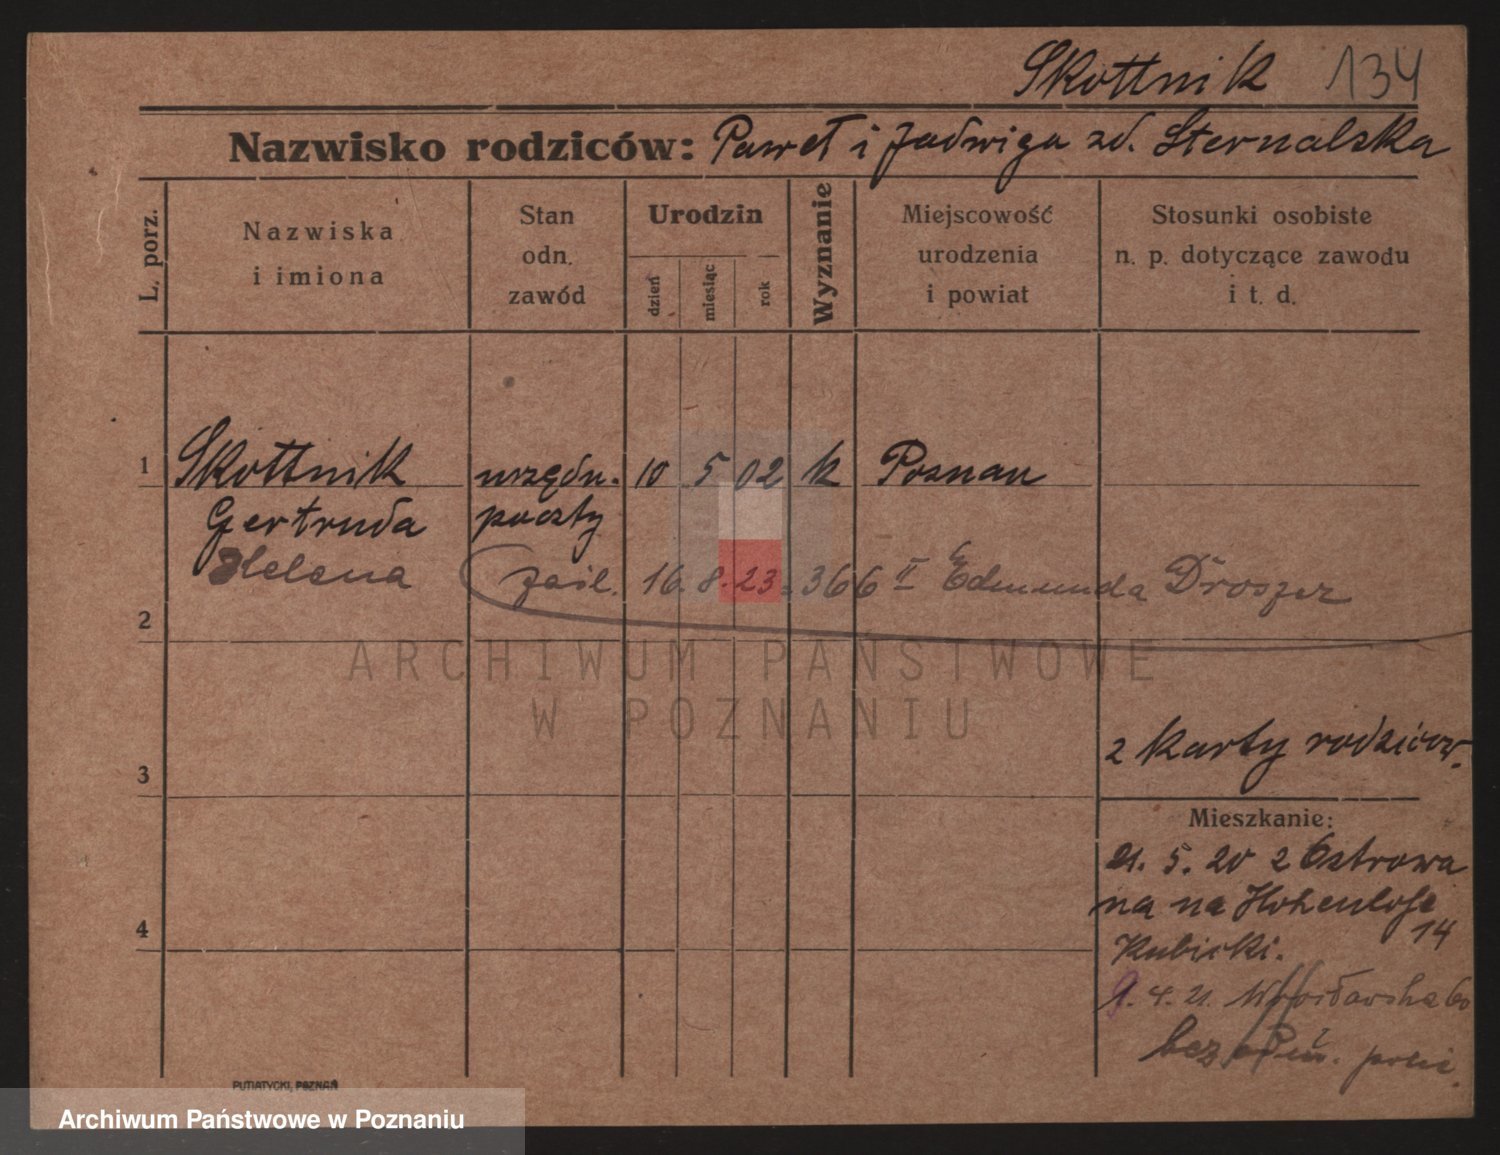 Skottnik 134
Nazwisko rodziców: Paweł i Jadwiga zd. Sternalska
L. porz.
Nazwiska
i imiona
Stan
odn.
zawód
Urodzin
dzień
miesiąc
rok
Wyznanie
Miejscowość
urodzenia
i powiat
Stosunki osobiste
n. p. dotyczące zawodu
i t. d.
1 Skottnik urzędn. 10 5 02 k Poznań
Gertruda poczty
Helena zaśl. 16. 8. 23. 366 II Edmunda Droszcz
2
ARCHIWUM PAŃSTWOWE
W POZNANIU
2 karty rodziców.
3
Mieszkanie:
21. 5. 20 z Ostrowa
na na Hohenlohe
14
4
Kubicki.
9. 4. 21. Wrocławska 60
bez
PUTIATYCKI, POZNAŃ
Archiwum Państwowe w Poznaniu